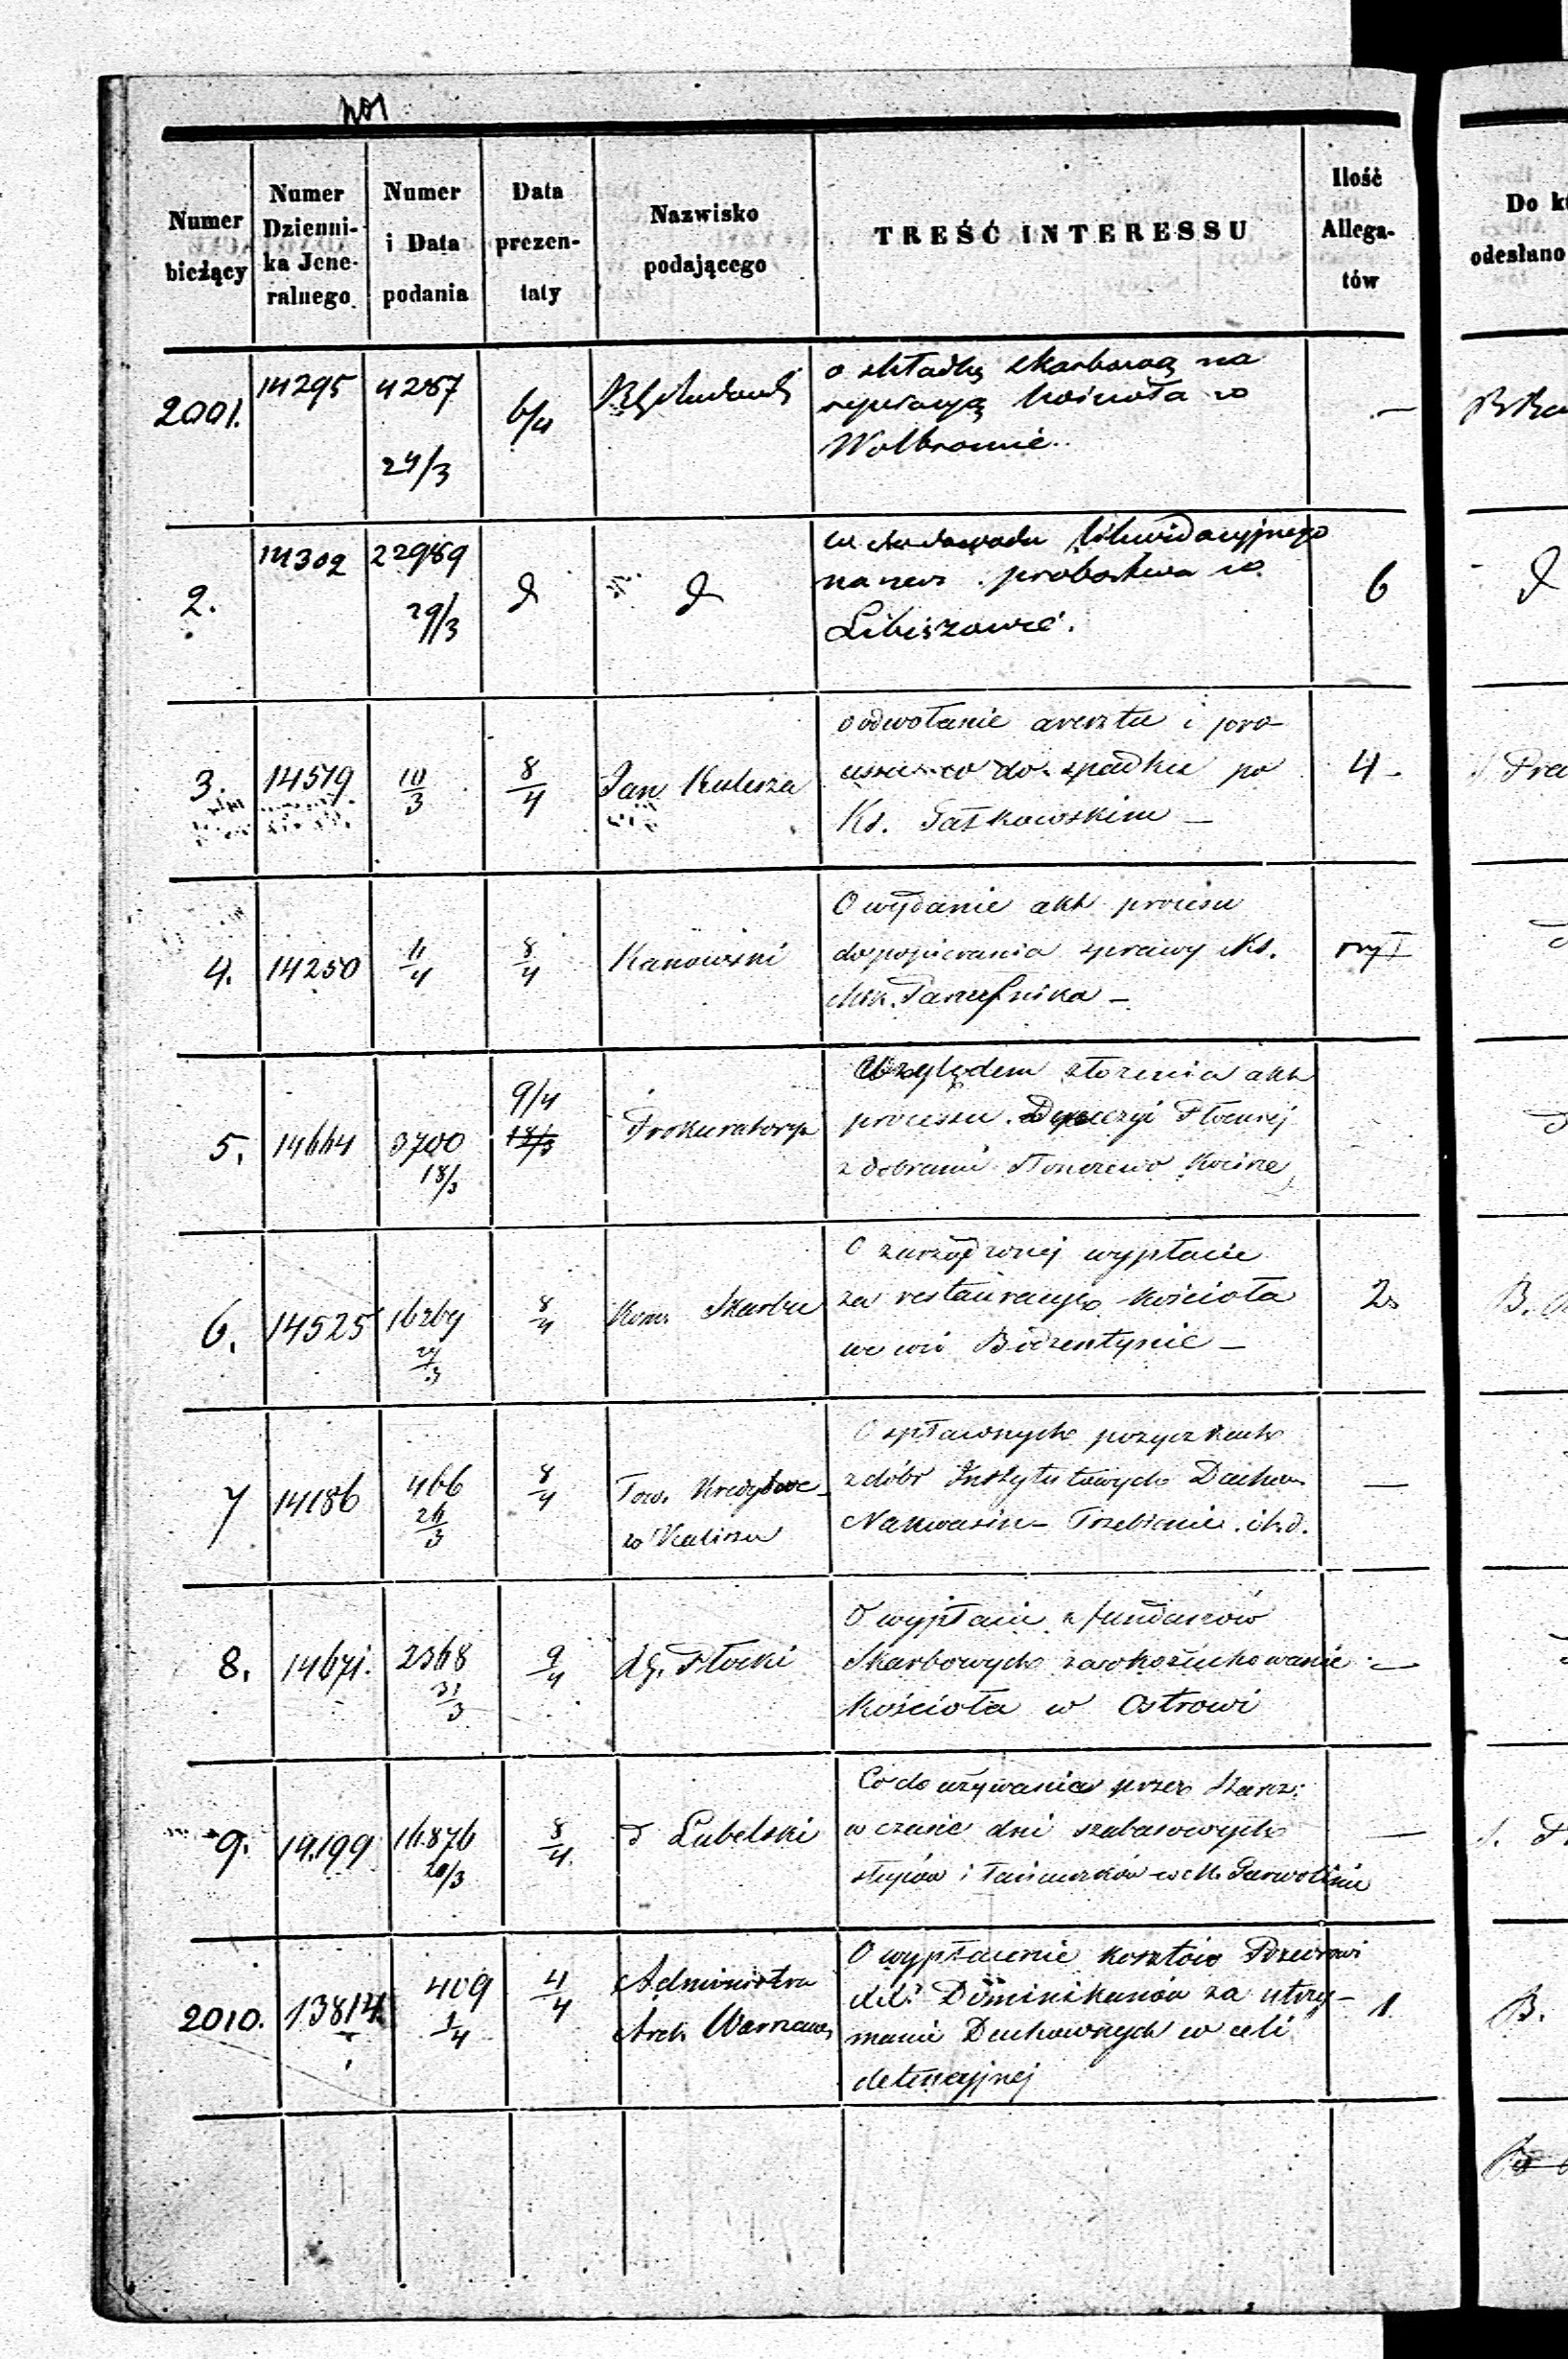 Numer bieżący
Numer Dzienni-ka Jene-ralnego
Numer i Data podania
Data prezen-taty
Nazwisko podającego
TREŚĆ INTERESSU
Ilość Allega-tów
Do
odesłano
2001. 14295 4287 24/3 6/4
o składkę skarbową na
reperacyą kościoła w
Wolbromie
—
2. 14302 22989 29/3 d d
likwidacyjnego
probostwa w
Libiszowie.
6
d
3. 14519 10/3 8/4 Jan Kulesza
o odwołanie aresztu i
do spadku po
Ks.
4
4. 14250 11/4 8/4
O wydanie akt procesu
do popierania sprawy Ks.
5. 14664 3700 18/3 9/4 Prokuratorya
Względem złożenia akt
processu Dyecezyi Płockiej
z dobrami
6. 14525 16269 24/3 8/4 Kom. Skarbu
O zarządzonej wypłacie
za restauracyę kościoła
we wsi Bodzentynie —
2
B.
7 14186 466 26/3 8/4 Tow. Kredytowe
w Kaliszu
O spławnych pożyczkach
z dóbr Instytutowych Duchow.
i t. d.
—
8. 14671. 2368 31/3 9/4 dg. Płocki
O wypłacie z funduszów
Skarbowych za okożuchowanie
Kościoła w Ostrowi
—
9. 14.199 16.876 20/3 8/4 d Lubelski
Co do używania przez Starz:
w czasie dni szabasowych
słupów i łańcuszków w M. Garwolinie
—
2010. 13814 409 1/4 4/4 Administra
Arch Warszaws
O wypłacenie kosztów
Dominikanów za utrzy-
manie Duchownych w celi
detencyjnej
1
B.